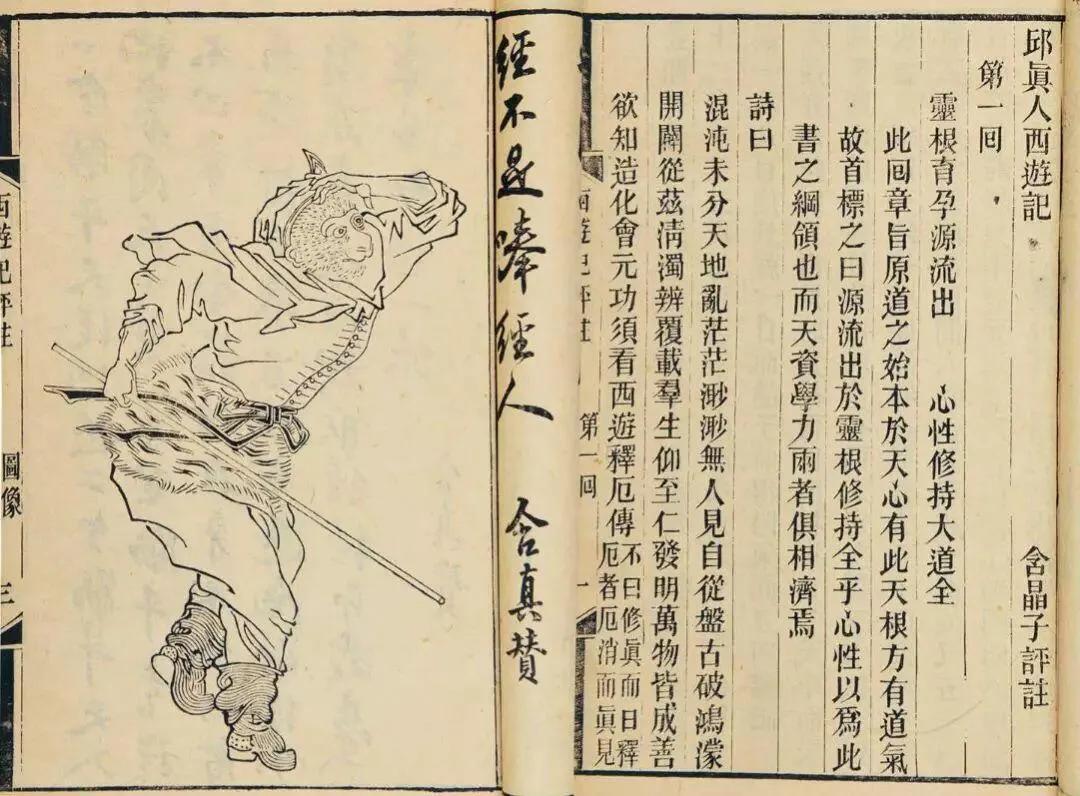 邱眞人西遊記 含晶子評註
第一回
靈根育孕源流出 心性修持大道全
此回章旨原道之始本於天心有此天根方有道氣
故首標之曰源流出於靈根修持全乎心性以爲此
書之綱領也而天資學力兩者俱相濟焉
詩曰
混沌未分天地亂茫茫渺渺無人見自從盤古破鴻濛
開闢從茲淸濁辨覆載羣生仰至仁發明萬物皆成善
欲知造化會元功須看西遊釋厄傳
不曰修眞而曰釋
厄者厄消而眞見
西遊記評註 第一回 一
經不是唪經人 含真贊
西遊記評註 圖像 三